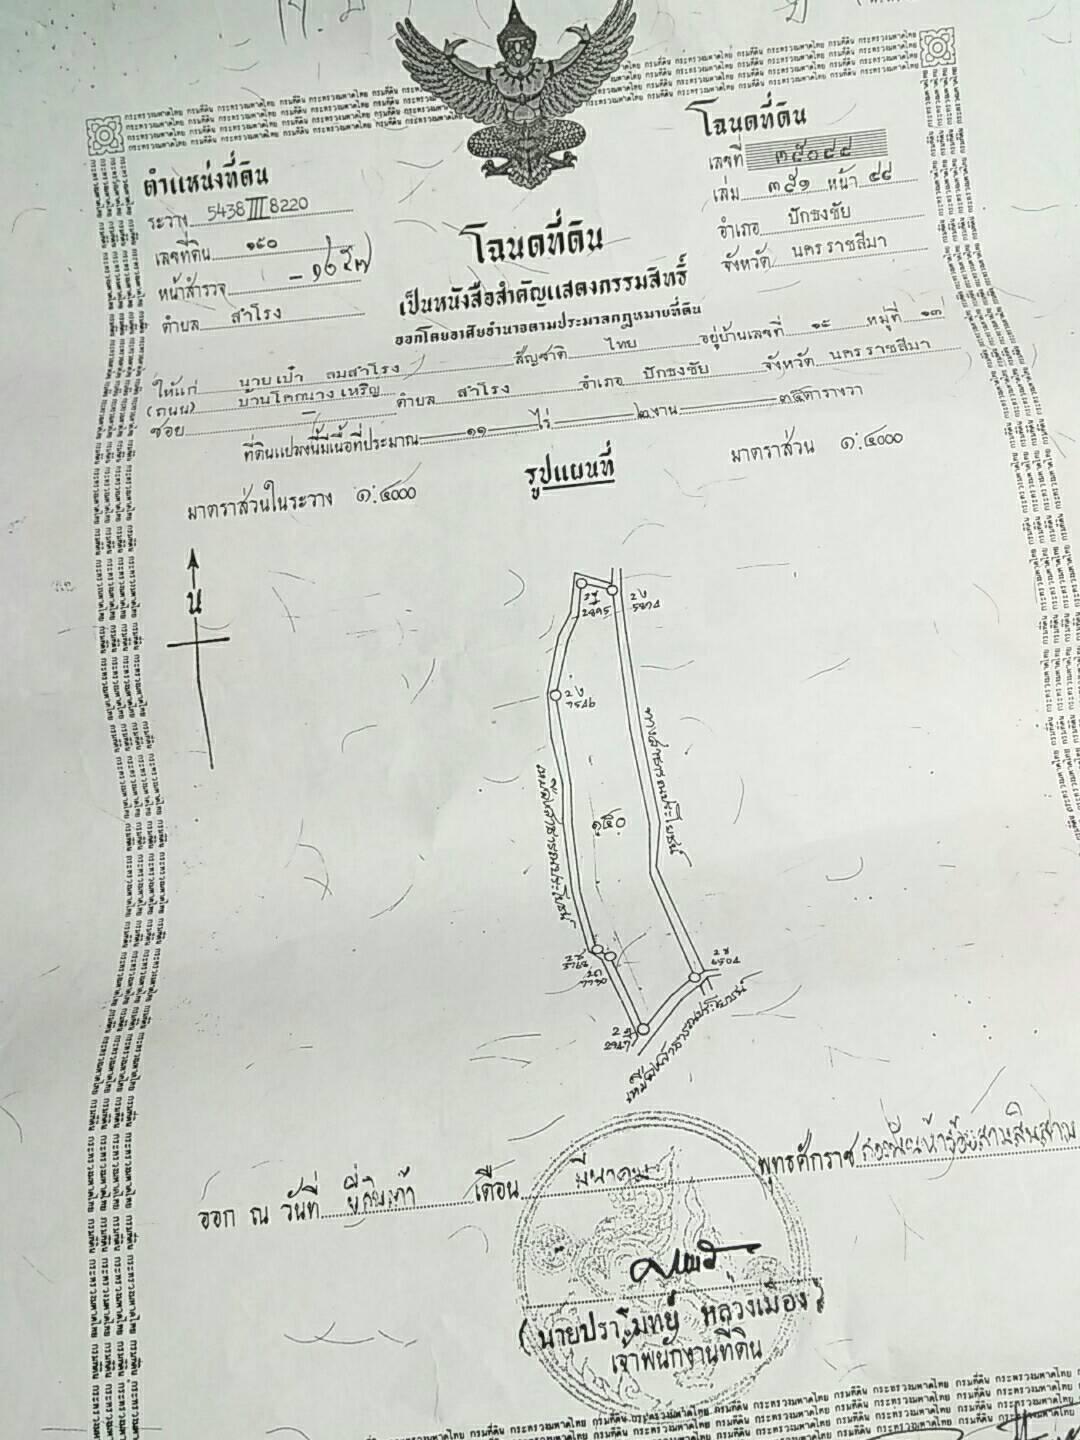 โฉนดที่ดิน
เลขที่ ๓๕๐๔๔
เล่ม ๓๕๑ หน้า ๔๔
อำเภอ ปักธงชัย
จังหวัด นครราชสีมา
ตำแหน่งที่ดิน
ระวาง 5438 III 8220
เลขที่ดิน ๑๔๐
หน้าสำรวจ
ตำบล สำโรง
โฉนดที่ดิน
เป็นหนังสือสำคัญแสดงกรรมสิทธิ์
ออกโดยอาศัยอำนาจตามประมวลกฎหมายที่ดิน
ให้แก่ นายเป๋า ลมสำโรง สัญชาติ ไทย อยู่บ้านเลขที่ ๑๕ หมู่ที่ ๑๓
(ถนน) บ้านโคกนางเหริญ ตำบล สำโรง อำเภอ ปักธงชัย จังหวัด นครราชสีมา
ซอย
ที่ดินแปลงนี้มีเนื้อที่ประมาณ ๑๑ ไร่ ๒ งาน ๓๕ ตารางวา
รูปแผนที่
มาตราส่วนในระวาง ๑:๔๐๐๐
มาตราส่วน ๑:๔๐๐๐
น
ทางสาธารณประโยชน์
๑๔๐
เหมืองสาธารณประโยชน์
ออก ณ วันที่ ยี่สิบเก้า เดือน มีนาคม พุทธศักราช สองพันห้าร้อยสามสิบสาม
(นายปราโมทย์ หลวงเมือง)
เจ้าพนักงานที่ดิน
กรมที่ดิน กระทรวงมหาดไทย